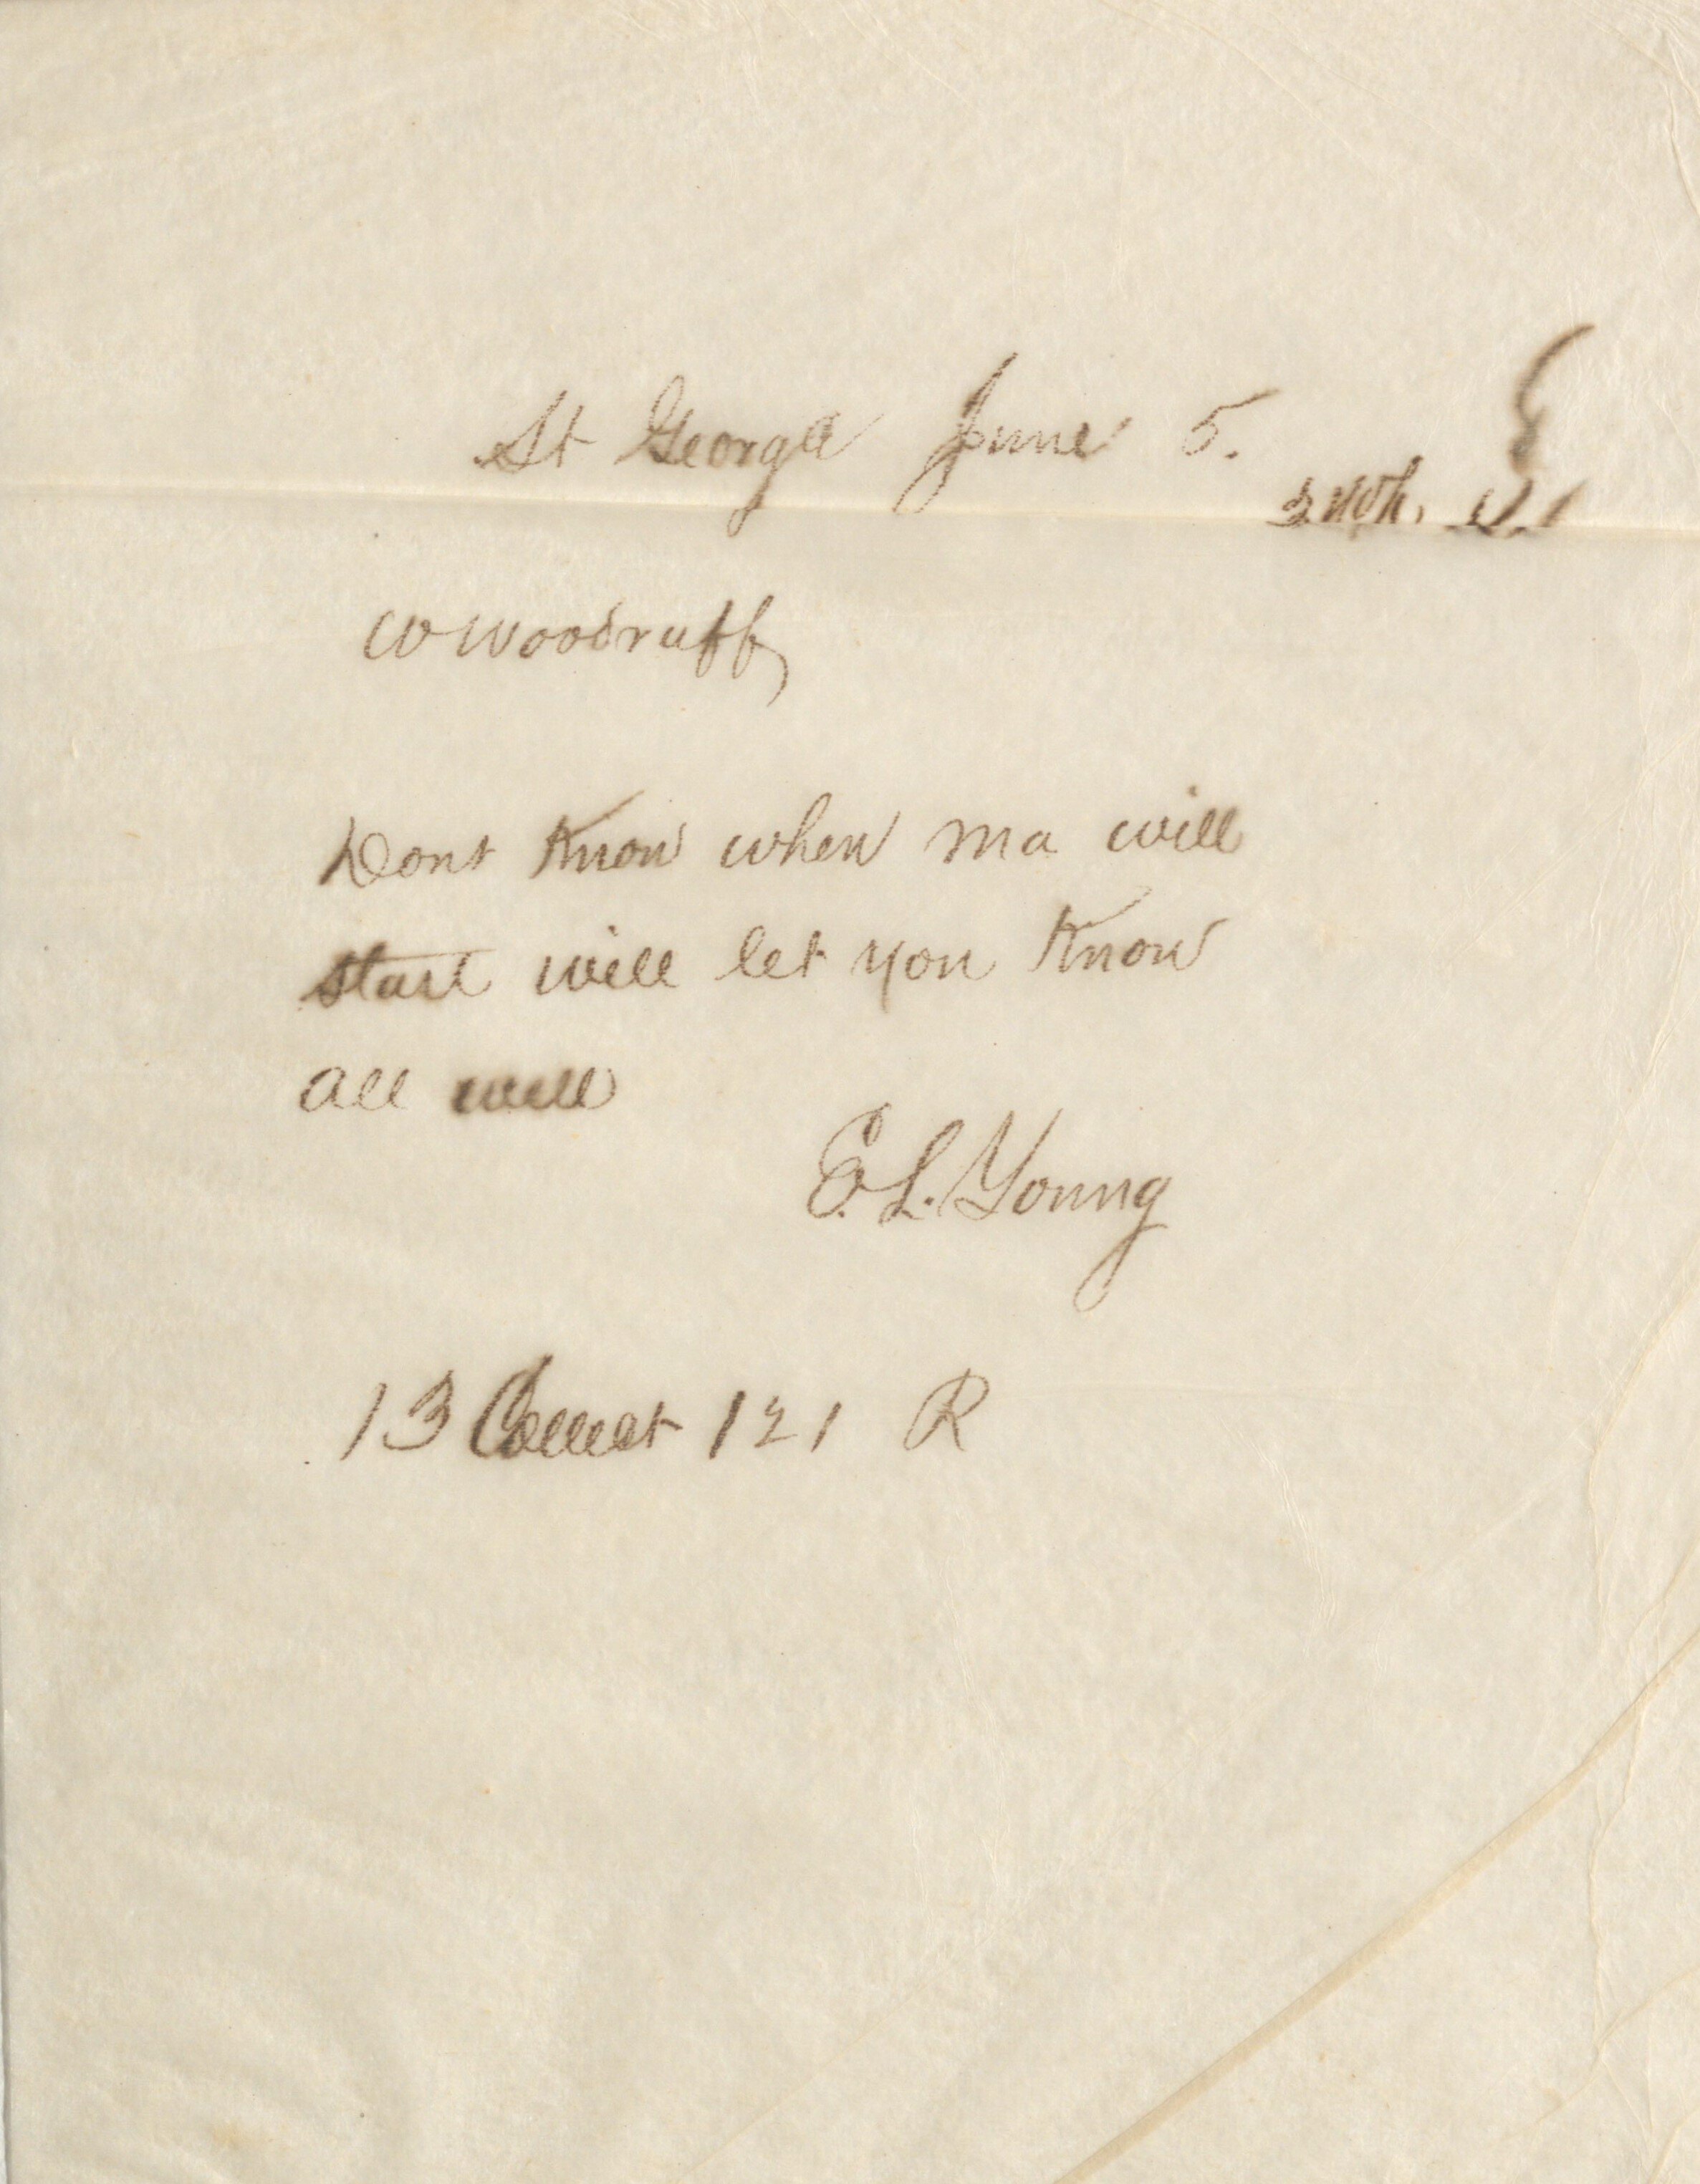 St George June 5.
W Woodruff
Dont Know when Ma will
start will let you Know
all well
E. L. Young
13 Collect 121 R